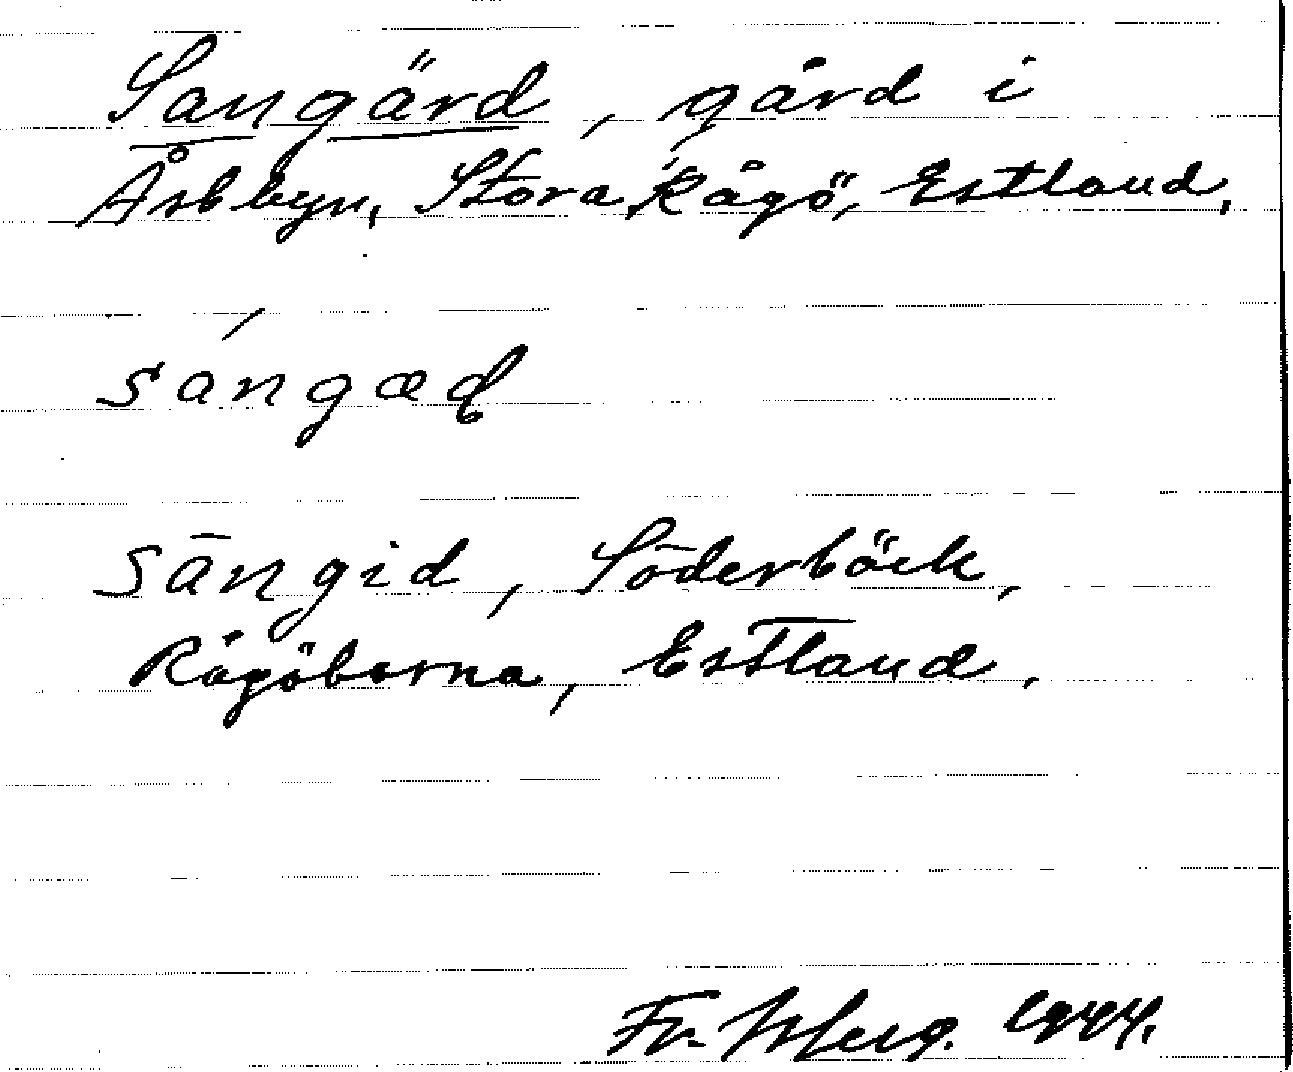 Sangärd, gård i
Åsbbyn, Stora Rågö, Estland.
sángæd
sāngid, Söderbäck,
Rågöborna, Estland.
Fr. 1944.